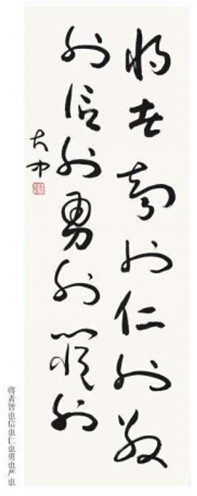 将者智也仁也敬
也信也勇也严也
大中
将者智也信也仁也勇也严也